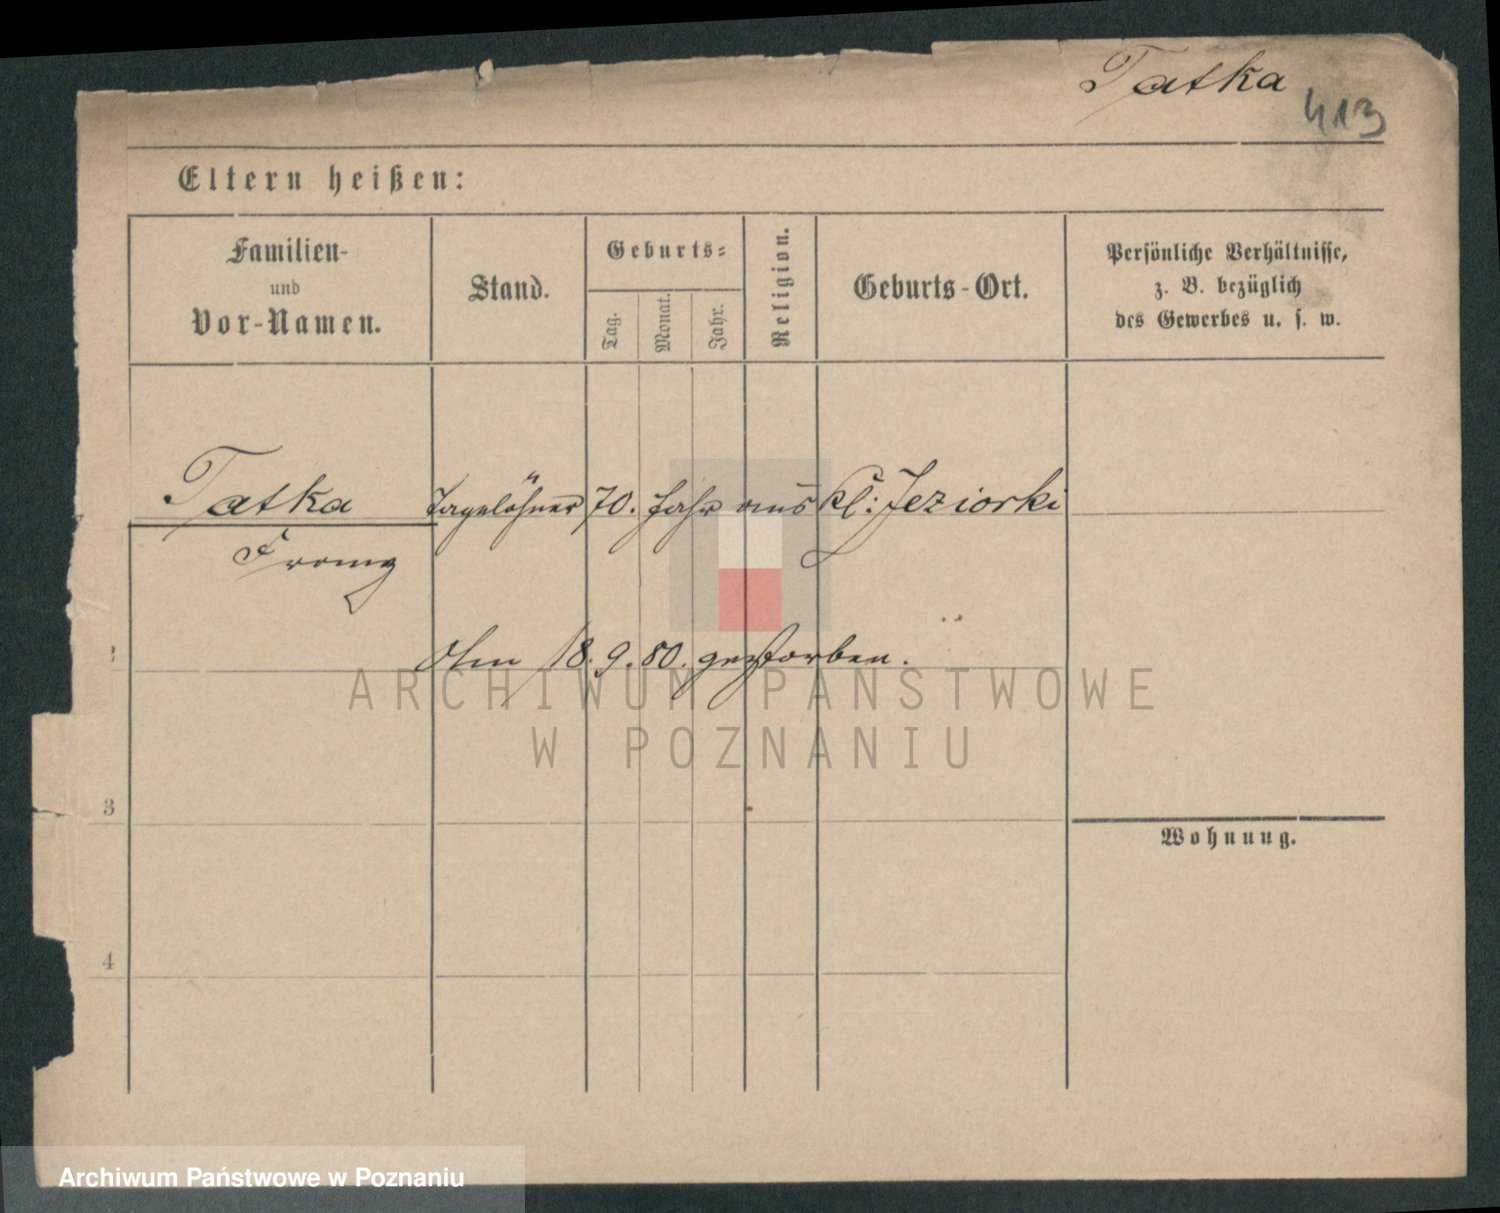 Tatka
413
Eltern heißen:
Familien-
und
Vor-Namen.
Stand.
Geburts-
Tag.
Monat.
Jahr.
Religion.
Geburts-Ort.
Persönliche Verhältnisse,
z. B. bezüglich
des Gewerbes u. s. w.
Tatka Tagelöhner 70. Jahr aus Kl: Jeziorki
Franz
Am 18.9.80. gestorben.
ARCHIWUM PAŃSTWOWE
W POZNANIU
3
Wohnung.
4
Archiwum Państwowe w Poznaniu